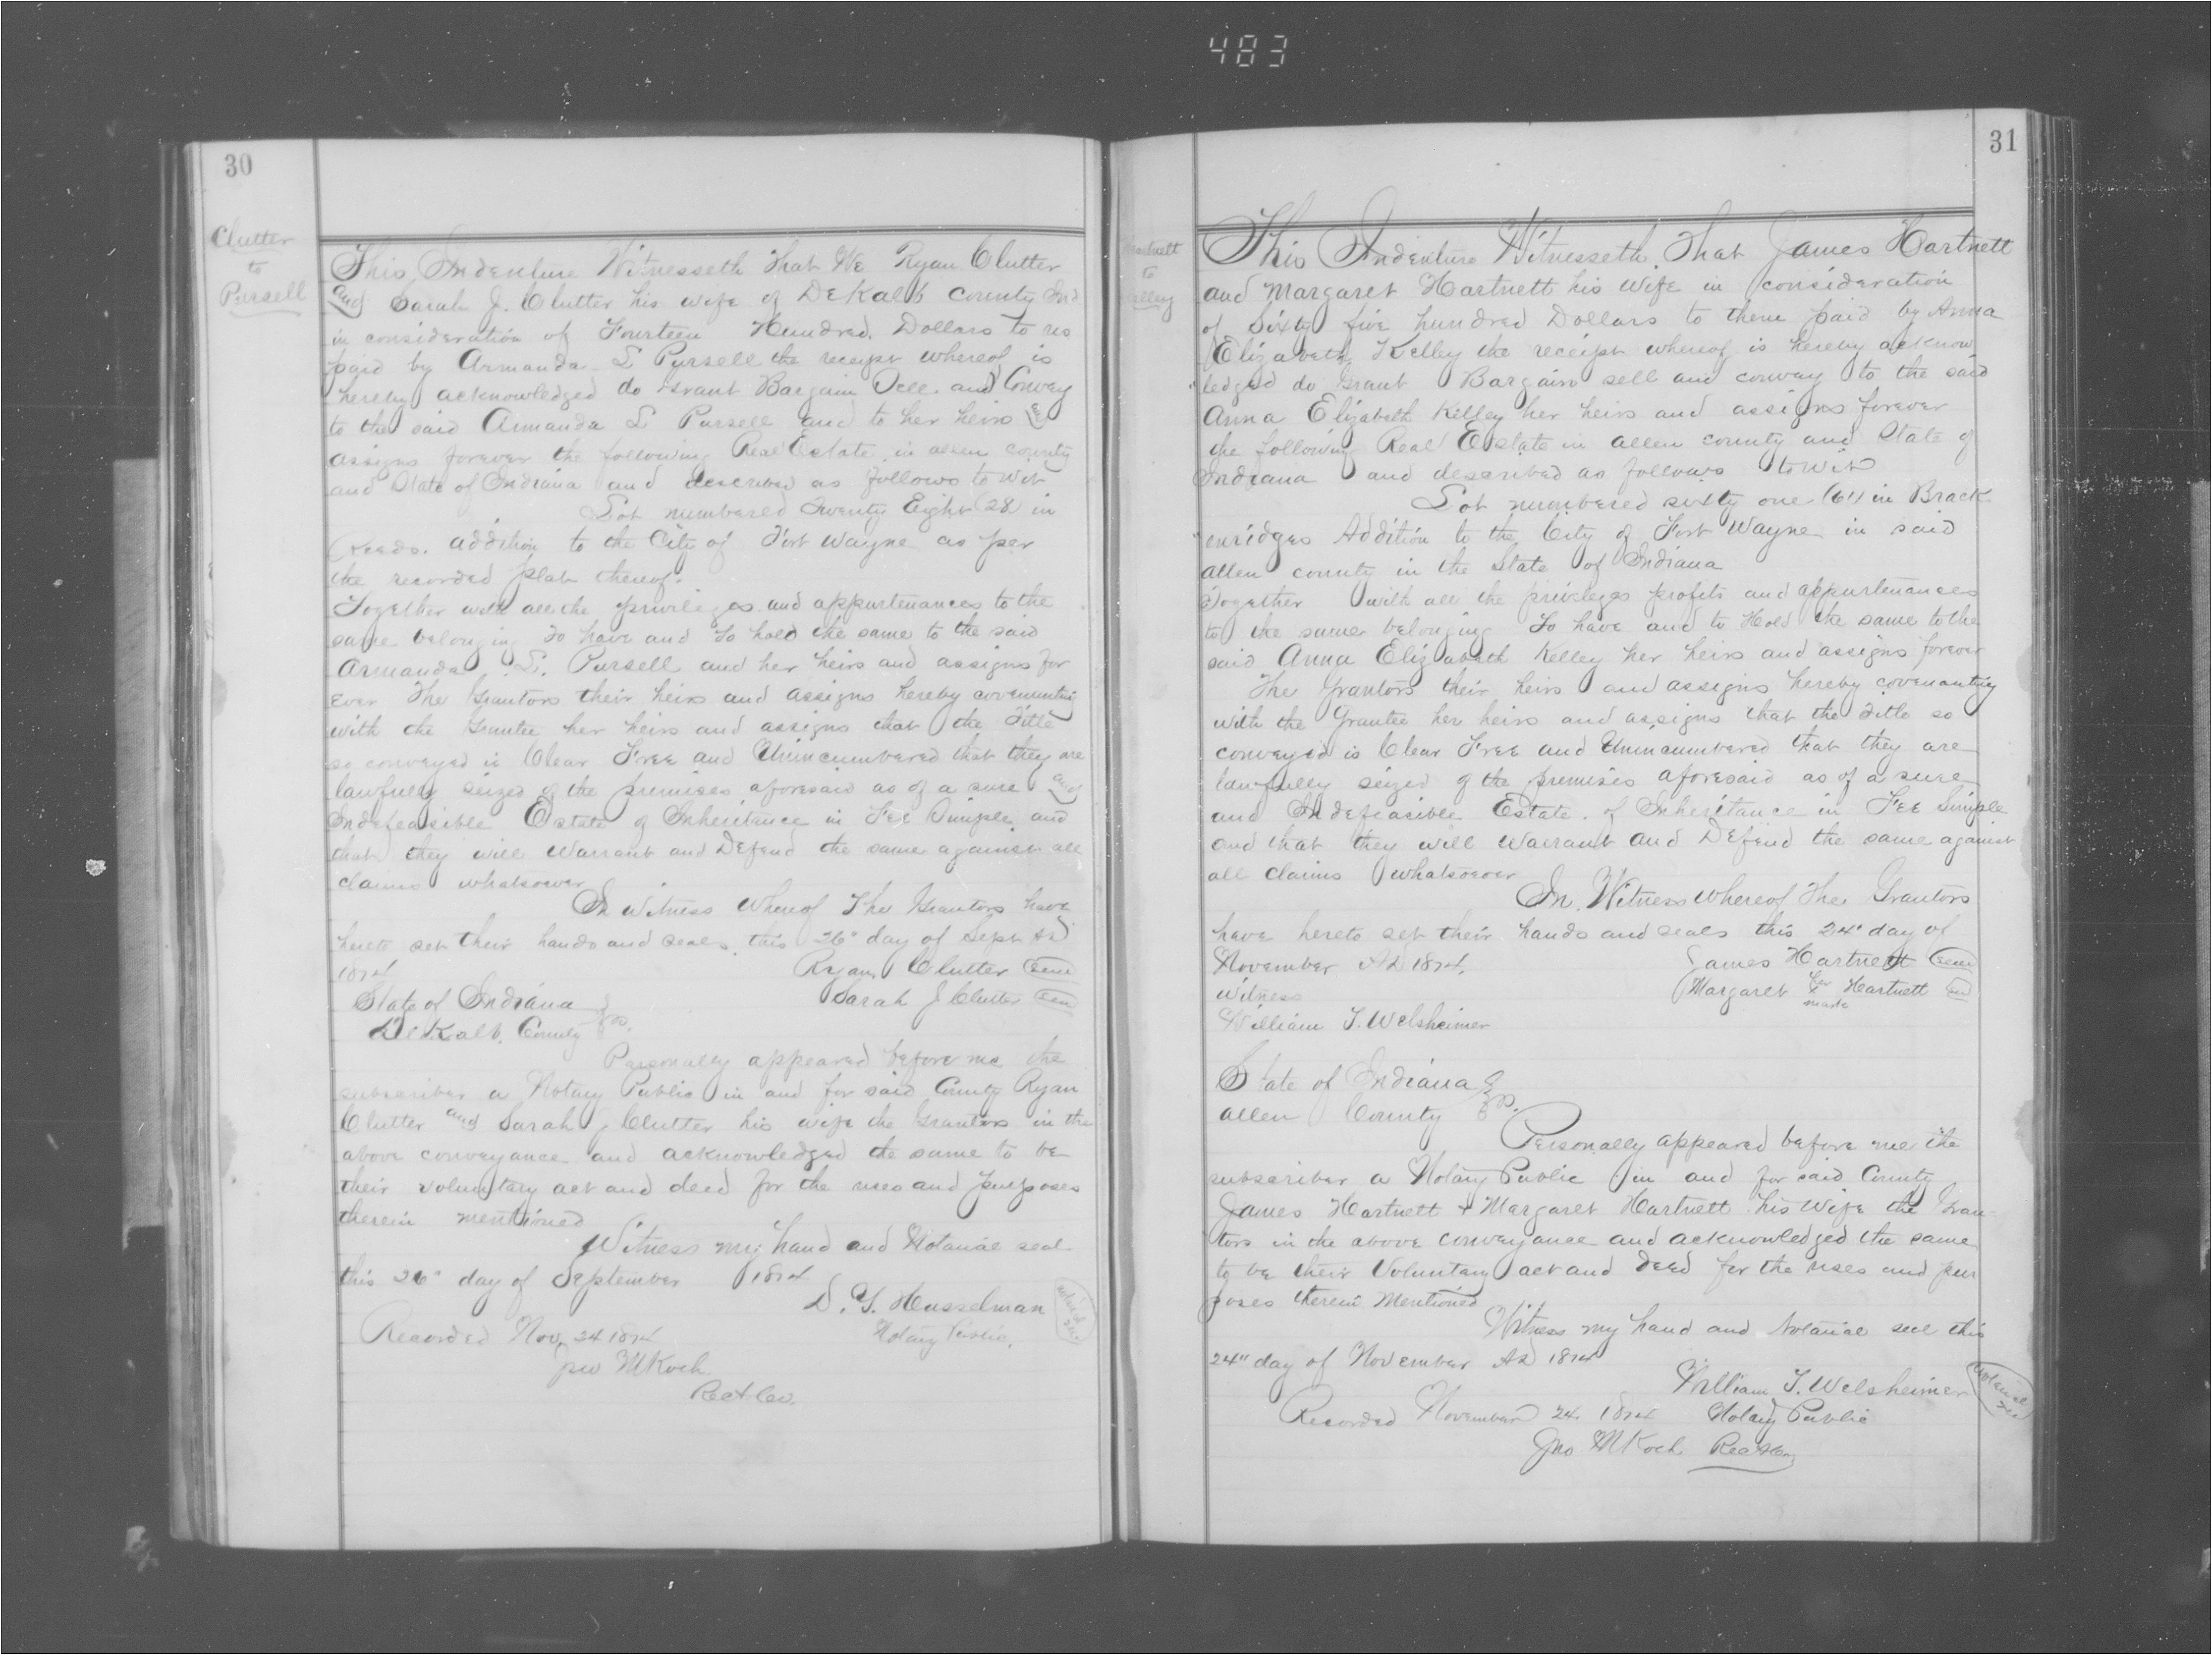 483
30
Clutter
to
Pursell
This Indenture Witnesseth That We Ryan Clutter
and Sarah J. Clutter his wife of DeKalb County Ind
in consideration of Fourteen Hundred Dollars to us
paid by Armanda L Pursell the receipt whereof is
hereby acknowledged do Grant Bargain Sell and Convey
to the said Armanda L Pursell and to her heirs and
assigns forever the following Real Estate in allen county
and State of Indiana and described as follows to wit
Lot numbered Twenty Eight (28) in
Reeds. addition to the City of Fort Wayne as per
the recorded plat thereof.
Together with all the privileges and appurtenances to the
same belonging To have and To hold the same to the said
Armanda L. Pursell and her heirs and assigns for
ever The Grantors their heirs and assigns hereby covenanting
with the Grantee her heirs and assigns that the Title
so conveyed is Clear Free and Unincumbered that they are
lawfully seized of the premises aforesaid as of a sure and
Indefeasible Estate of Inheritance in Fee Simple and
that they will Warrant and Defend the same against all
claims whatsoever
In Witness Whereof The Grantors have
hereto set their hands and seals this 26" day of Sept AD
1874 Ryan Clutter seal
State of Indiana Sarah J Clutter seal
DeKalb County ss.
Personally appeared before me the
subscriber a Notary Public in and for said County Ryan
Clutter and Sarah J Clutter his wife the Grantors in the
above conveyance and acknowledged the same to be
their voluntary act and deed for the uses and purposes
therein mentioned
Witness my hand and Notarial seal
this 26" day of September 1874
D. Y. Husselman Notarial seal
Recorded Nov 24 1874 Notary Public.
Jno M Koch
31
Hartnett
to
Kelley
This Indenture Witnesseth That James Hartnett
and Margaret Hartnett his Wife in consideration
of Sixty five hundred Dollars to them paid by Anna
Elizabeth Kelley the receipt whereof is hereby acknow
ledged do Grant Bargain sell and convey to the said
Anna Elizabeth Kelley her heirs and assigns forever
the following Real Estate in allen county and State of
Indiana and described as follows towit
Lot numbered sixty one (61) in Brack
enridges Addition to the City of Fort Wayne in said
allen county in the State of Indiana
Together with all the privileges profits and appurtenances
to the same belonging To have and to Hold the same to the
said Anna Elizabeth Kelley her heirs and assigns forever
The Grantors their heirs and assigns hereby covenanting
with the Grantee her heirs and assigns that the Title so
conveyed is Clear Free and Unincumbered that they are
lawfully seized of the premises aforesaid as of a sure
and Indefeasible Estate of Inheritance in Fee Simple
and that they will Warrant and Defend the same against
all claims whatsoever
In Witness whereof The Grantors
have hereto set their hands and seals this 24" day of
November AD 1874. James Hartnett seal
Witness Margaret her x mark Hartnett seal
William T. Welsheimer
State of Indiana
allen County ss.
Personally appeared before me the
subscriber a Notary Public in and for said County
James Hartnett & Margaret Hartnett his Wife the Gran-
tors in the above conveyance and acknowledged the same
to be their Voluntary act and deed for the uses and pur
poses therein Mentioned
Witness my hand and Notarial seal this
24" day of November AD 1874
William T. Welsheimer Notarial seal
Recorded November 24 1874 Notary Public
Jno M Koch